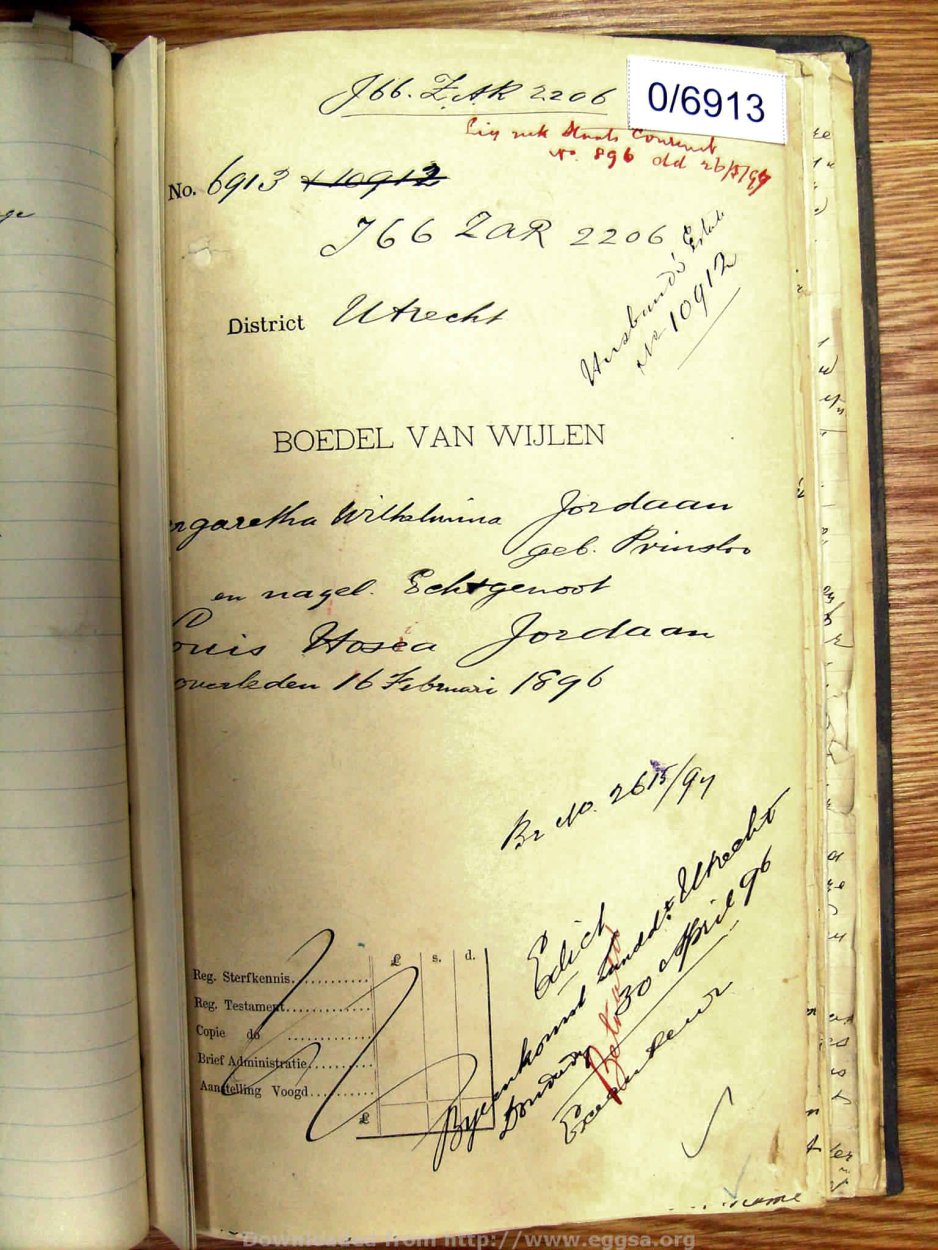 J66. ZAR 2206
0/6913
Staats Courant
No. 896 dd 26/5/97
No. 6913 + 10912
J66 ZAR 2206
Husband's Estate
No 10912
District Utrecht
BOEDEL VAN WIJLEN
rgaretha Wilhelmina Jordaan
geb. Prinsloo
en nagel. Echtgenoot
ouis Hosea Jordaan
overleden 16 Februari 1896
Br No. 2615/97
Edict
Byeenkomst Landd: Utrecht
Donderdag 30 April 96
Executeur
£ s. d.
Reg. Sterfkennis.
Reg. Testament.
Copie do
Brief Administratie.
Aanstelling Voogd.
£
name
Downloaded from http://www.eggsa.org